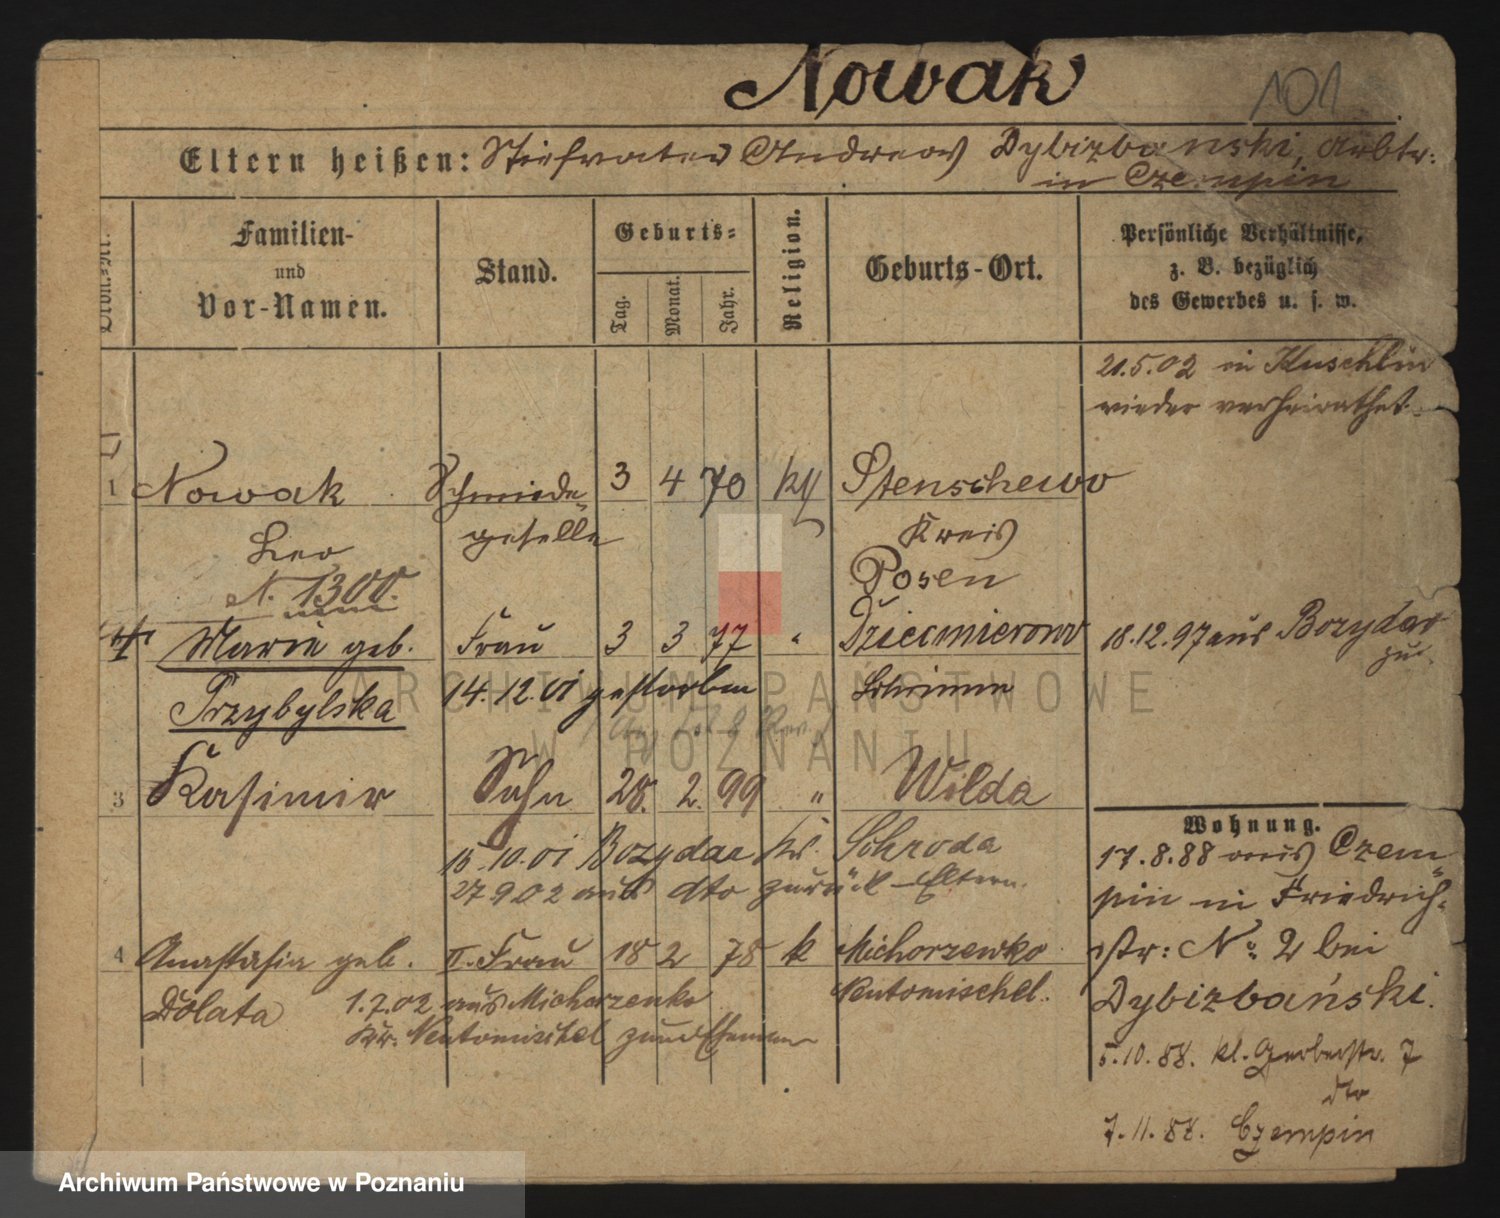 Nowak
101
Eltern heißen: Stiefvater Andreas Dybizbanski, Arbtr:
in Czempin
Familien-
und
Vor-Namen.
Stand.
Geburts-
Tag.
Monat.
Jahr.
Religion.
Geburts-Ort.
Persönliche Verhältnisse,
z. B. bezüglich
des Gewerbes u. s. w.
21.5.02 in Kuschlin
wieder verheirathet.
1 Nowak Schmiede- 3 4 70 k Stenschewo
Leo geselle Kreis
N. 1300. Posen
Marie geb. Frau 3 3 77 " Dziecmierowo 18.12.97 aus Bozydar
zur.
Przybylska 14.12.01 gestorben Schrimm
3 Kasimir Sohn 28. 2. 99 " Wilda
15.10.01 Bozydar Kr. Schroda
27 9 02 aus dto zurück Eltern.
4 Anastasia geb. II. Frau 18 2 78 k Michorzewko
Dolata 1.7.02 aus Michorzewko Neutomischel.
Kr. Neutomischel zum Ehemann
Wohnung.
17.8.88 aus Czem
pin in Friedrich-
str: No 2 bei
Dybizbański.
5.10.88. kl. Gerberstr. 7
dto
7.11.88. Czempin
ARCHIWUM PAŃSTWOWE
W POZNANIU
Archiwum Państwowe w Poznaniu